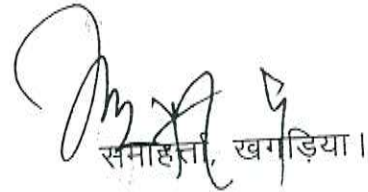 समाहर्त्ता, खगड़िया।